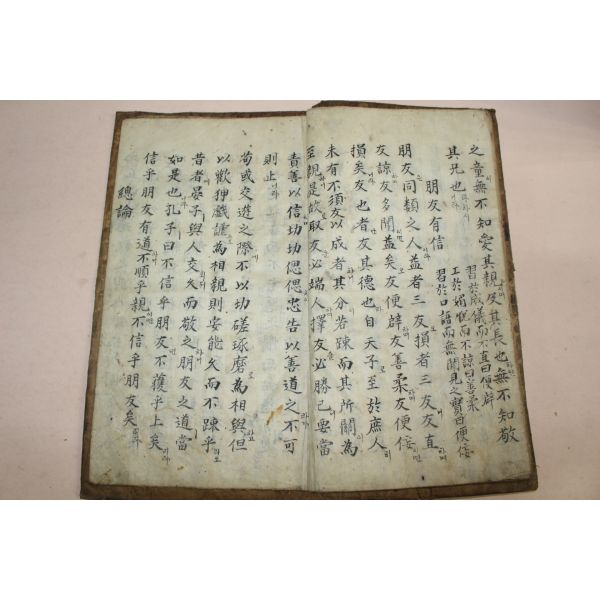 之童無不知愛其親及其長也無不知敬
其兄也
習於威儀而不直曰便辟
工於媚悅而不諒曰善柔
習於口語而無聞見之實曰便佞
朋友有信
朋友同類之人益者三友損者三友友直
友諒友多聞益矣友便辟友善柔友便佞
損矣友也者友其德也自天子至於庶人
未有不須友以成者其分若疎而其所關為
至親是故取友必端人擇友必勝己要當
責善以信切切偲偲忠告以善道之不可
則止
苟或交遊之際不以切磋琢磨為相與但
以歡狎戲謔為相親則安能久而不疎乎
昔者晏子與人交久而敬之朋友之道當
如是也孔子曰不信乎朋友不獲乎上矣
信乎朋友有道不順乎親不信乎朋友矣
總論